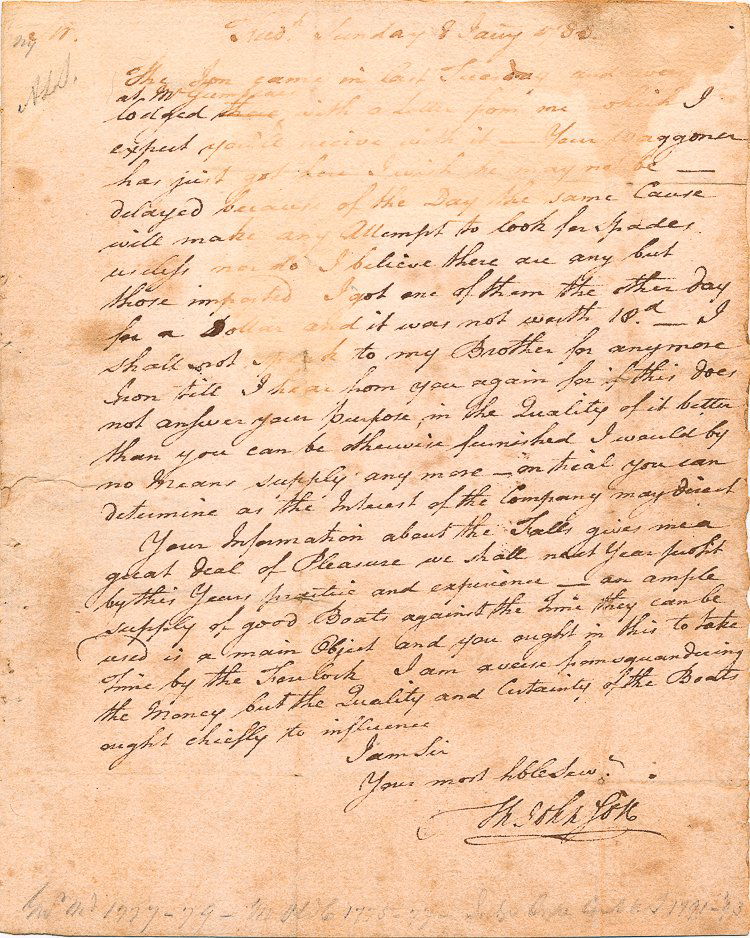 Fred.k Sunday 8 Jany 178
A L S.
The Iron came in last Tuesday and
at Mr
lodged there, with a Letter from me which I
expect you'll receive with it – Your Waggoner
has just got here I wish he may not be —
delayed because of the Day the same Cause
will make any Attempt to look for Spades
useless nor do I believe there are any but
those imported I got one of them the other day
for a Dollar and it was not worth 18.d – I
shall not speak to my Brother for any more
Iron till I hear from you again for if this does
not answer your purpose, in the Quality of it better
than you can be otherwise furnished I would by
no Means supply any more – on trial you can
determine as the Interest of the Company may direct
Your Information about the Falls gives me a
great deal of Pleasure we shall next Year profit
by this Years practice and experience — an ample
supply of good Boats against the Time they can be
used is a main Object and you ought in this to take
Time by the Forelock I am averse from squandering
the Money but the Quality and Certainty of the Boats
ought chiefly to influence
I am Sir
Your most hble Serv.t
Th Johnson
1777–79 –